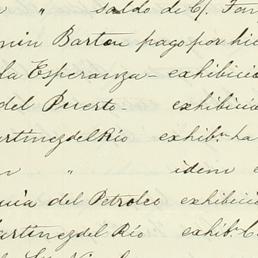 " saldo de C/. Fon
min Barton pago por hie
la Esperanza - exhibicio
del Puerto - exhibició
artinez del Río exhib.n ha
" idem
uia del Petroleo exhibició
artinez del Río exhib. C